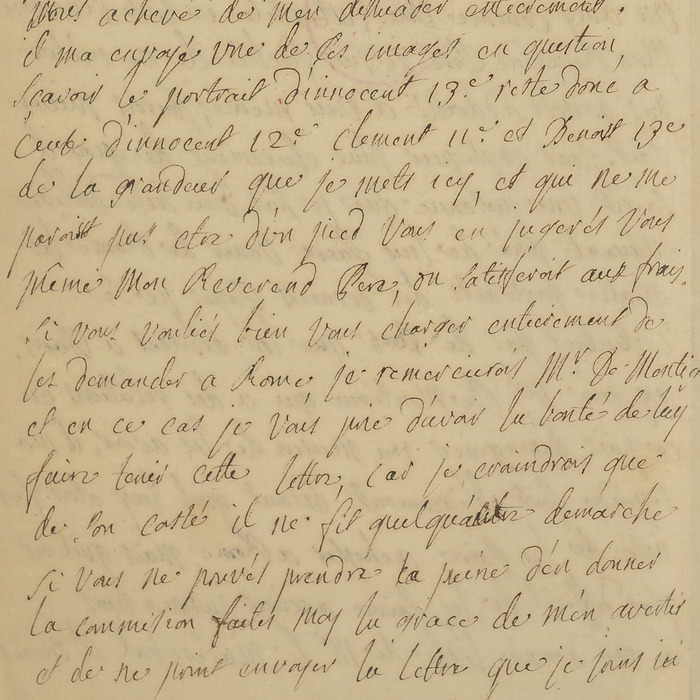 vous acheve de men disuader entierement.
il ma envoyé une de ses images en question,
scavoir le portrait d'innocent 13.e reste donc a
ceux d'innocent 12.e Clement 11.e et Benoist 13e
de la grandeur que je mets icy, et qui ne me
paroist pas etre d'un pied vous en jugerés vous
même Mon Reverend Pere, on satisferoit aux frais.
si vous vouliés bien vous charger entierement de
les demander a Rome je remercierois Mr. De
et en ce cas je vous prie d'avoir la bonté de luy
faire tenir cette lettre, car je craindrois que
de son costé il ne fit quelqu'autre demarche
si vous ne pouvés prendre la peine d'en donner
la commission faites moy la grace de m'en avertir
et de ne point envoyer la lettre que je joins ici